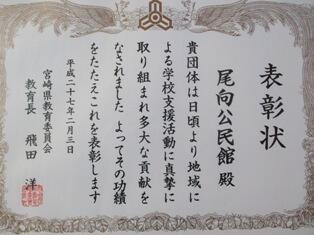 表彰状
尾向公民館 殿
貴団体は日頃より地域に
よる学校支援活動に真摯に
取り組まれ多大な貢献を
なされました よってその功績
をたたえこれを表彰します
平成二十七年二月三日
宮崎県教育委員会
教育長 飛田 洋